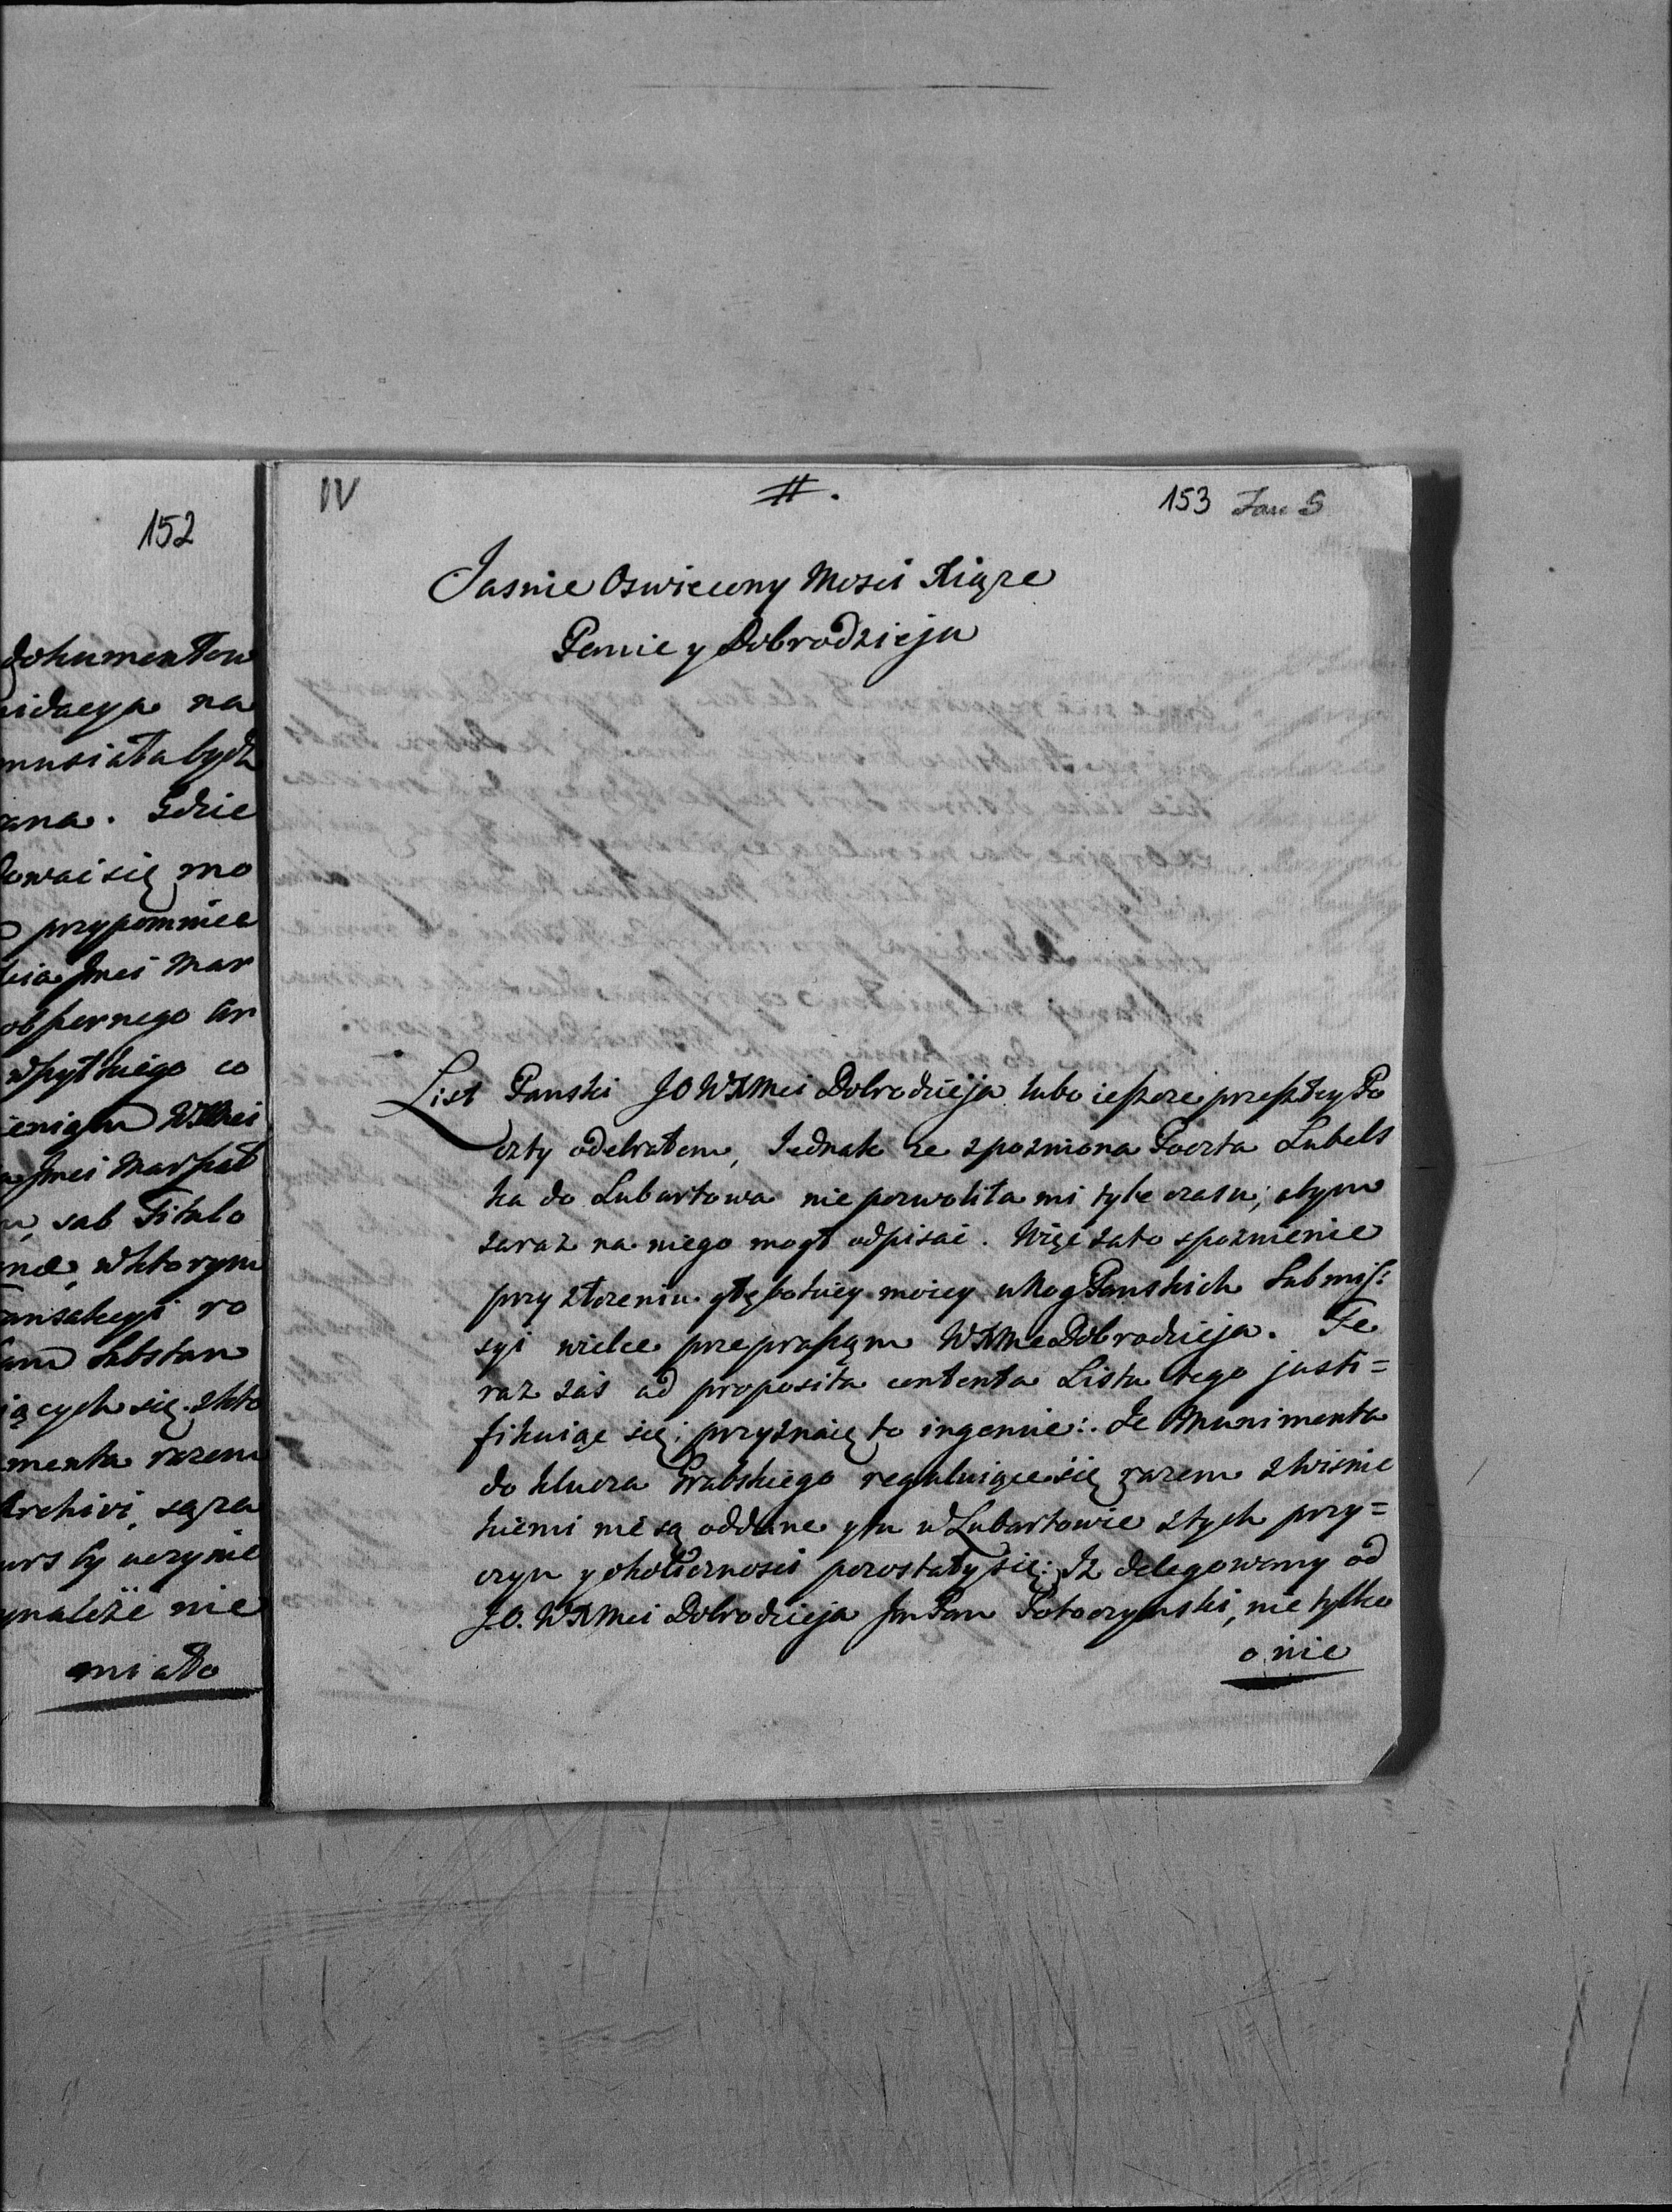 152
dokumentow
idacya na
musiała bydz
ana. Gdzie
dowac się mo
przypomniec
cia Jmci Mar
obszernego Ar
wszytkiego co
Jmci Marszał
sub Titulo
w ktorym
ansakcyi ro
Substan
iących się. z kto
menta razem
Archivi, są za
urs by uczynie
ynaleźc nie
miało
IV
#.
153 Jan S
Jasnie Oswiecony Mosci Xiąze
Panie y Dobrodzieju
List Panski JO WXMci Dobrodzieja lubo ieszcze przeszłey Po
czty odebrałem, Jednak ze zpozniona Poczta Lubels
ka do Lubartowa nie pozwoliła mi tyle czasu, abym
zaraz na niego mogł odpisac. Więc za to spoznienie
przy złozeniu głębokiey moiey u Nog Panskich Submiss:
syi wielce przepraszam WXMc Dobrodzieja. Te
raz zas ad proposita contenta Listu tego justi=
fikuiąc się; przyznaię to ingenue: Ze Munimenta
do klucza Grabskiego reguluiące się razem z Wisnic
kiemi nie są oddane y tu w Lubartowie z tych przy=
czyn y okolicznosci pozostały się: Iz delegowany od
J.O. WXMci Dobrodzieja Jm Pan Potoczynski, nie tylko
o nie